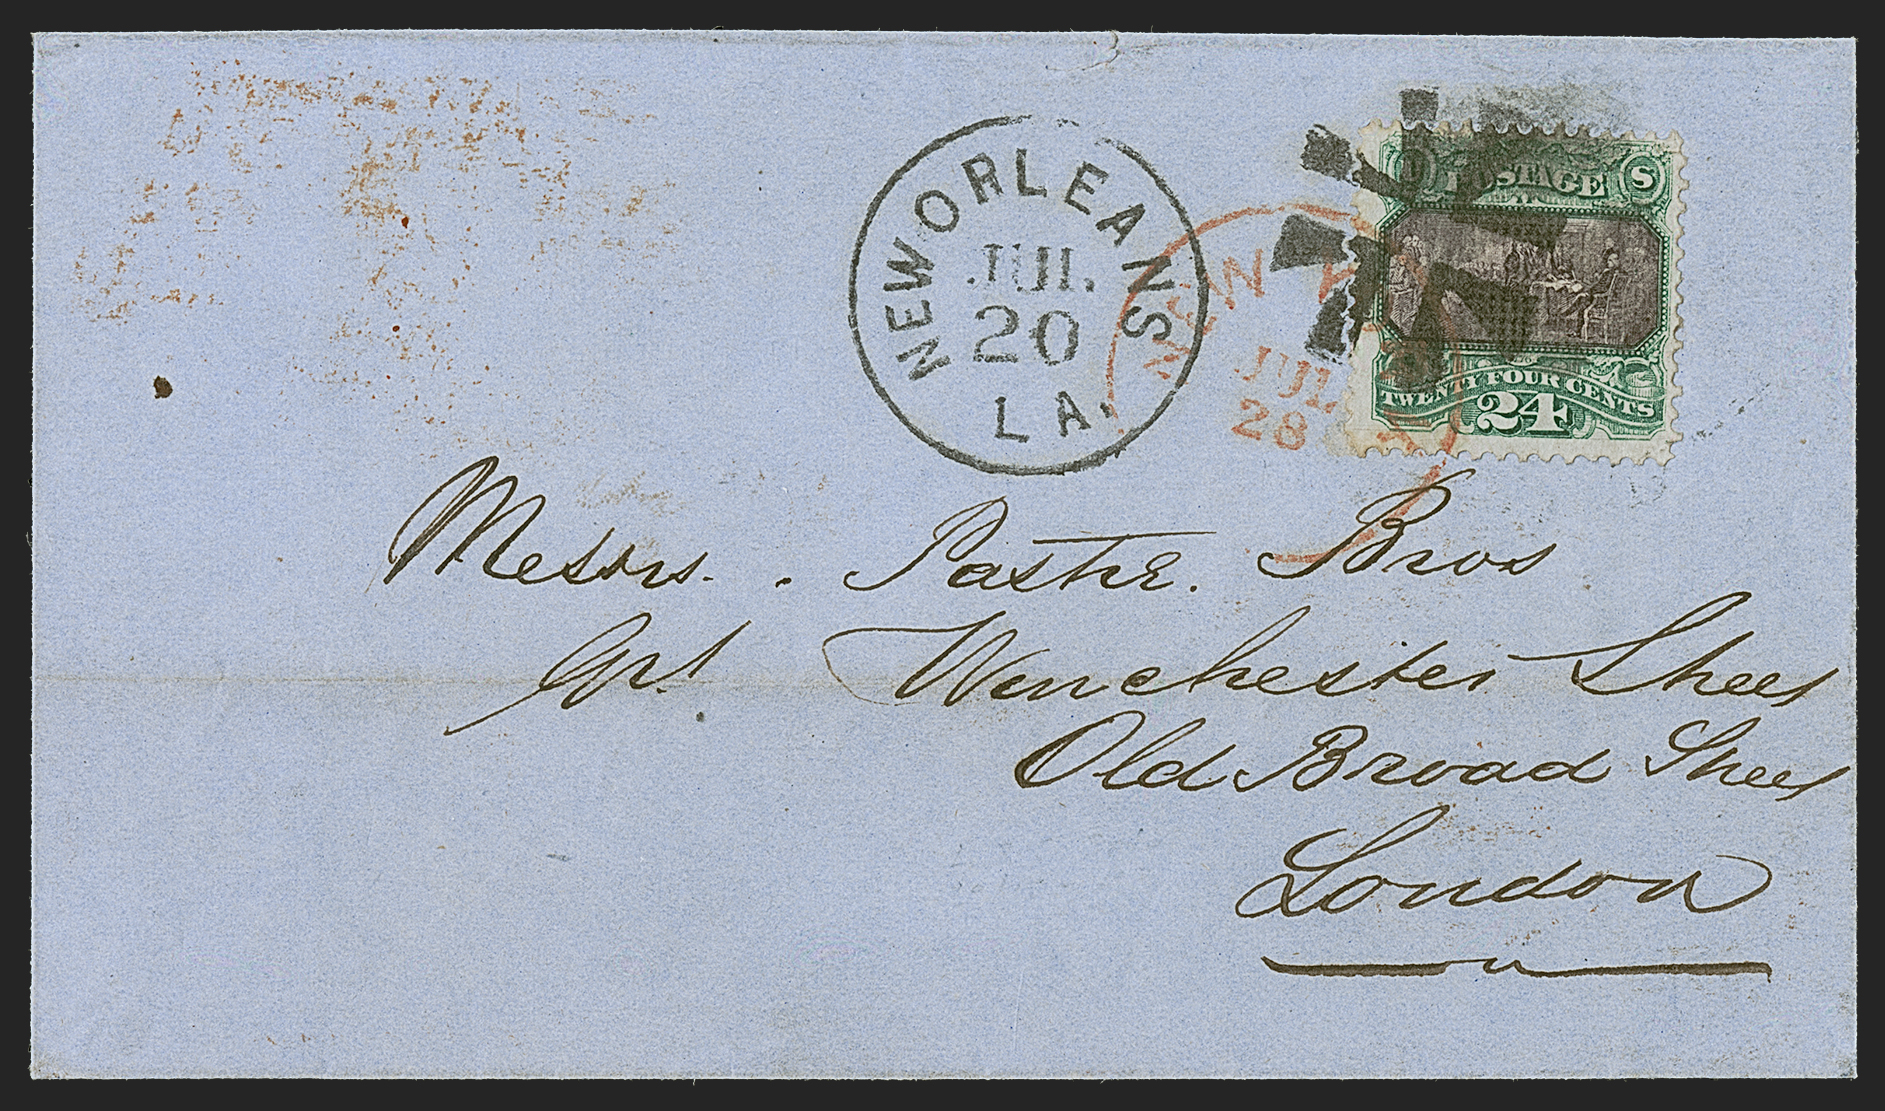 NEW ORLEANS
JUL.
20
LA.
NEW
JUL
28
U POSTAGE S
TWENTY FOUR CENTS
24
Messrs. Bros
Winchester Street
Old Broad Street
London